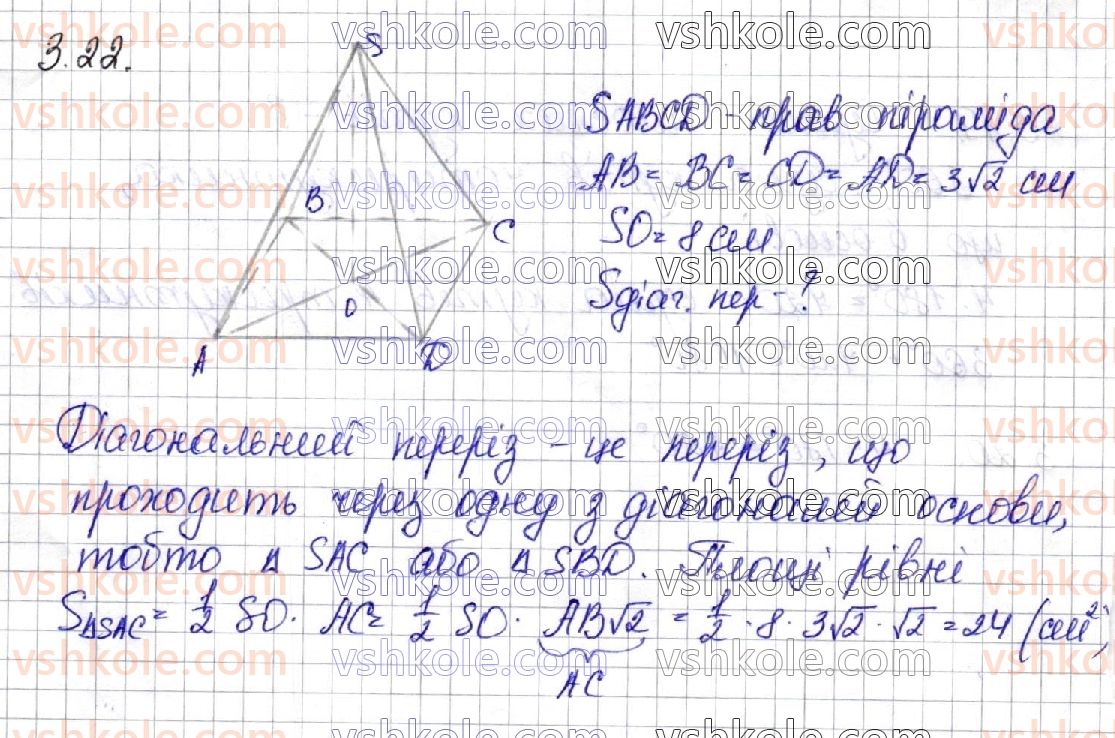 3.22.
S
B
C
O
A
D
SABCD - прав піраміда
AB = BC = CD = AD = 3√2 см
SO = 8 см
Sдіаг. пер - ?
Діагональний переріз – це переріз, що
проходить через одну з діагоналей основи,
тобто Δ SAC або Δ SBD. Площі рівні
SΔSAC = 1/2 SO · AC = 1/2 SO · AB√2 = 1/2 · 8 · 3√2 · √2 = 24 (см²)
AC
vshkole.com